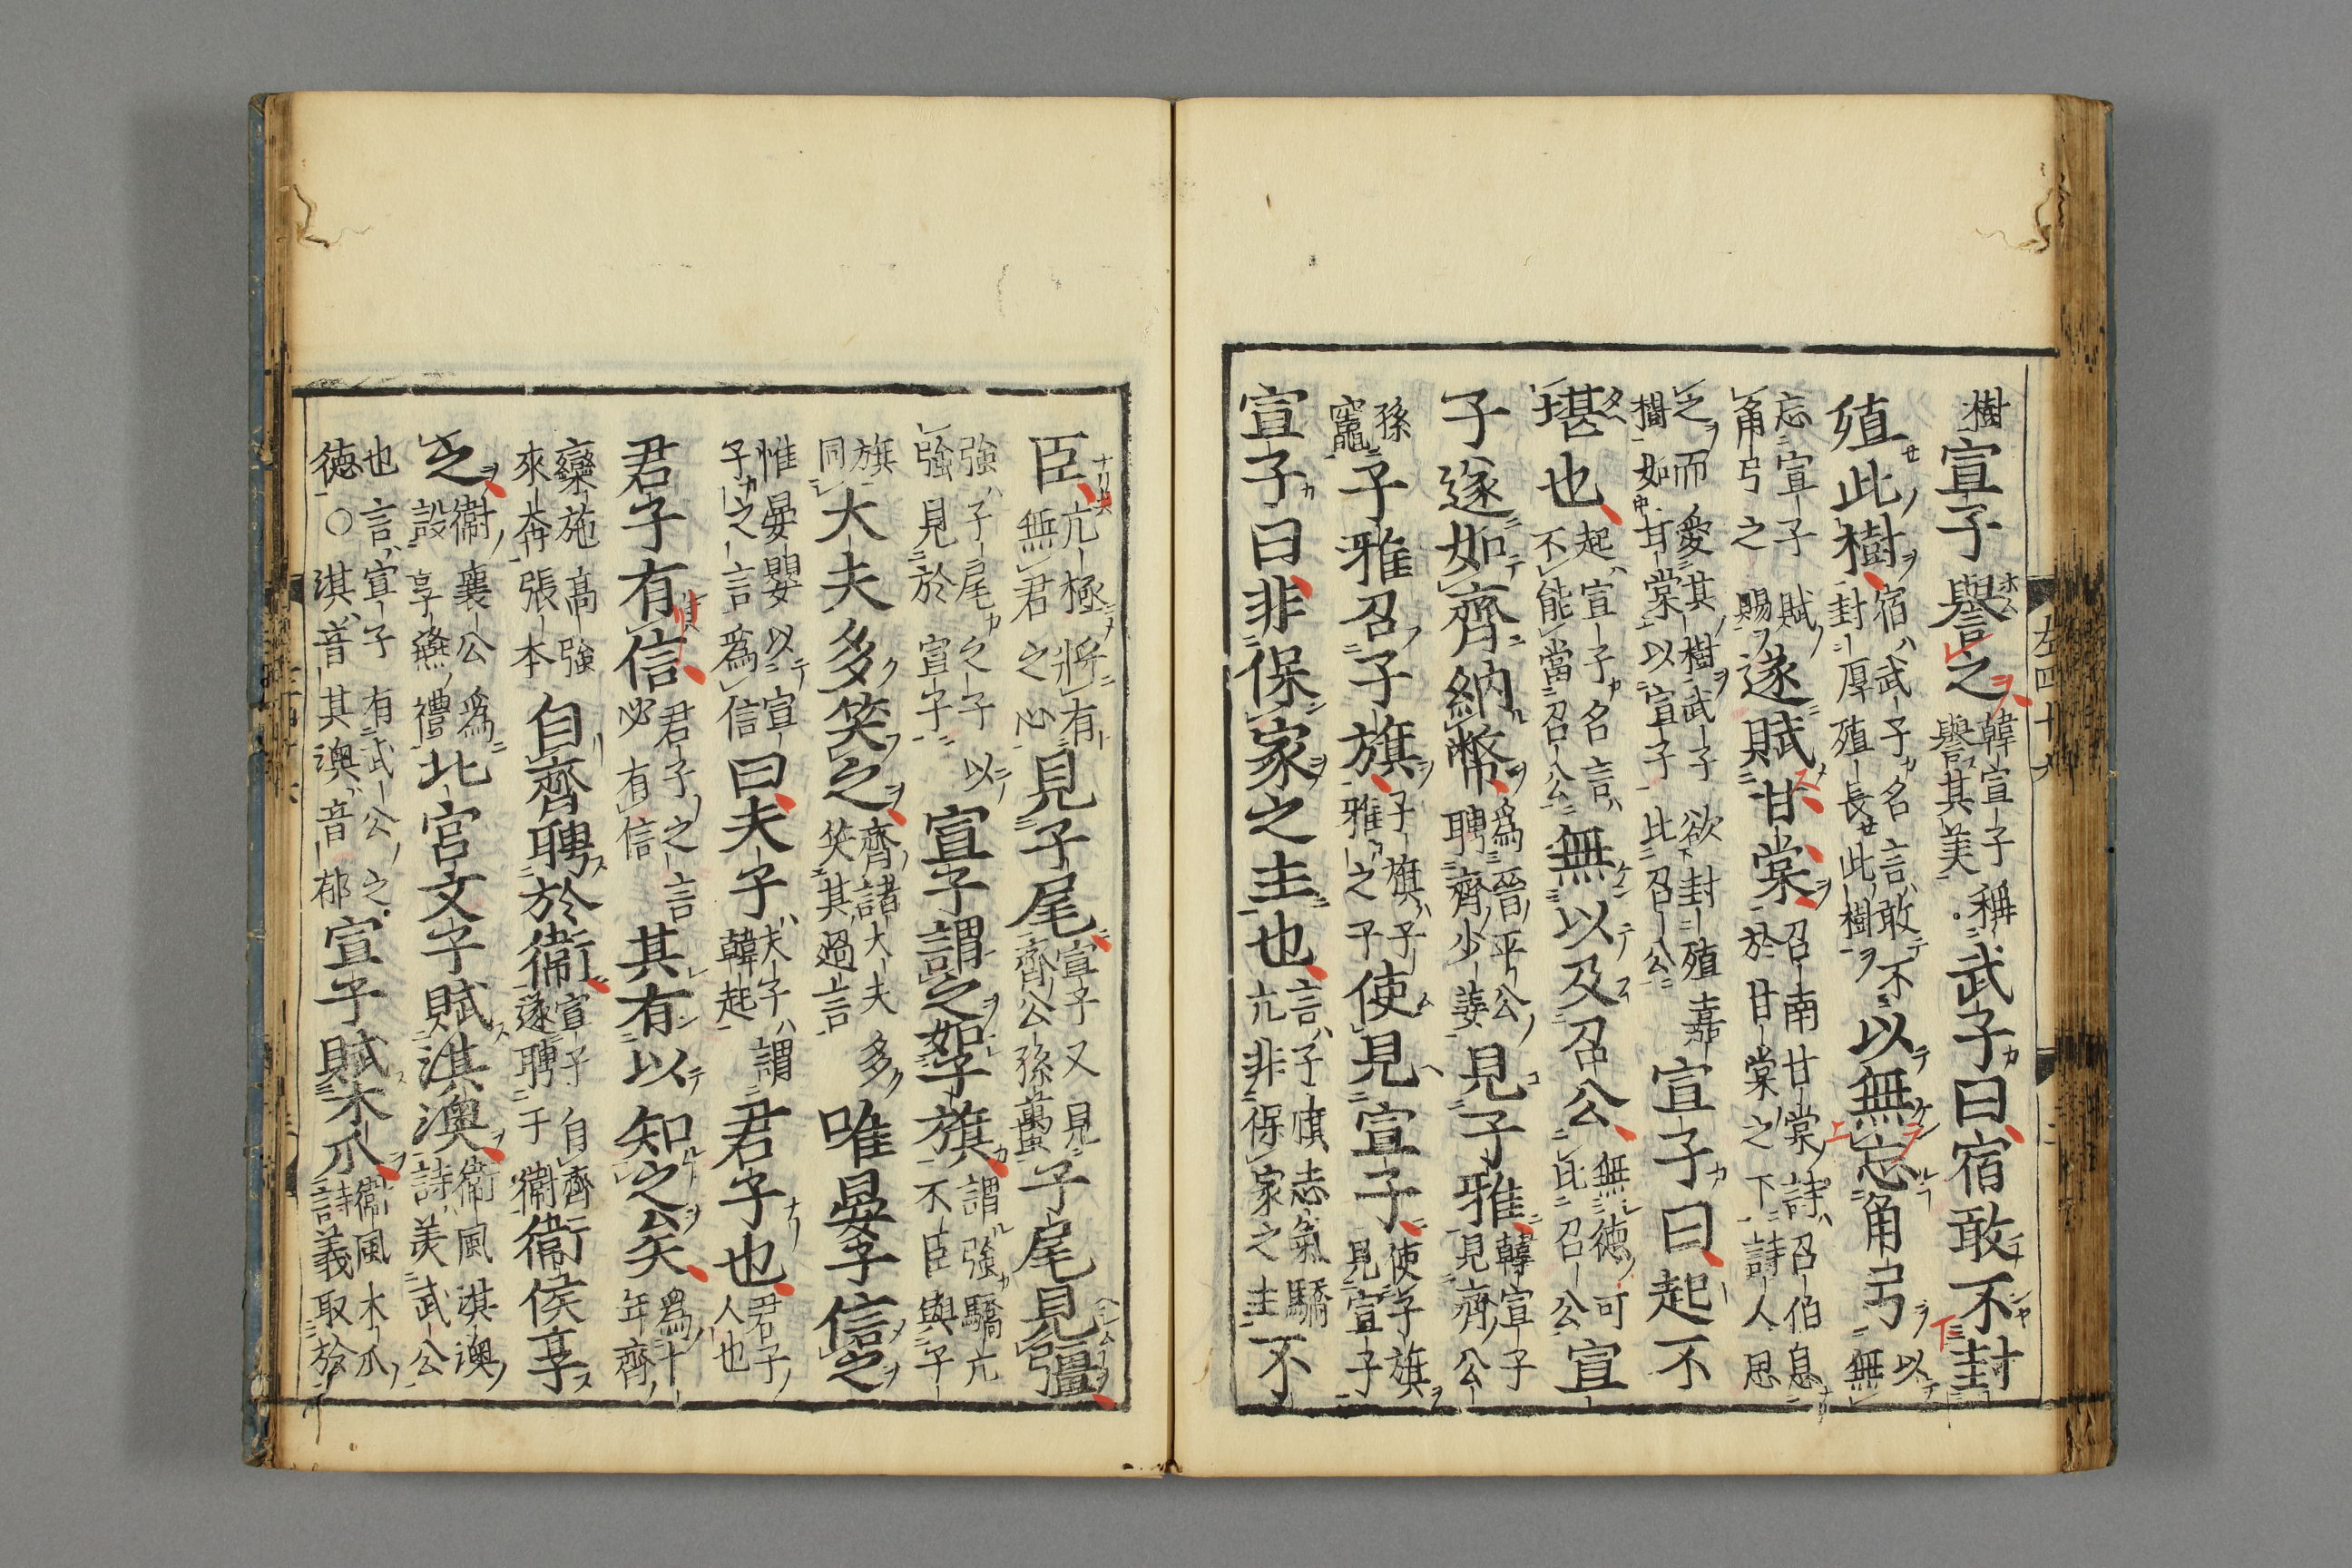 樹宣子譽之韓宣子譽其美稱武子曰宿敢不封
殖此樹宿武子名言敢不封厚殖長此樹以無忘角弓以無
忘宣子賦角弓之賜遂賦甘棠召南甘棠詩召伯息於甘棠之下詩人思
之而愛其樹武子欲封殖嘉樹如甘棠以宣子比召公宣子曰起不
堪也起宣子名言不能當召公無以及召公無德可比召公宣
子遂如齊納幣爲晉平公聘齊少姜見子雅韓宣子見齊公
孫竈子雅召子旗子旗子雅之子使見宣子使子旗見宣子
宣子曰非保家之主也言子旗志氣驕亢非保家之主不
左四十
臣亢極將有無君之心見子尾宣子又見齊公孫蠆子尾見彊
強子尾之子以強見於宣子宣子謂之如子旗謂強驕亢不臣與子
旗同大夫多笑之齊諸大夫多笑其過言唯晏子信之
惟晏嬰以宣子之言爲信曰夫子夫子謂韓起君子也君子人也
君子有信君子之言必有信其有以知之矣爲十年齊
欒施高強來奔張本自齊聘於衞宣子自齊遂聘于衞衞侯享
之衞襄公爲設享燕禮北宮文子賦淇澳衞風淇澳詩美武公
也言宣子有武公之德○淇音其澳音郁宣子賦木瓜衞風木瓜詩義取於